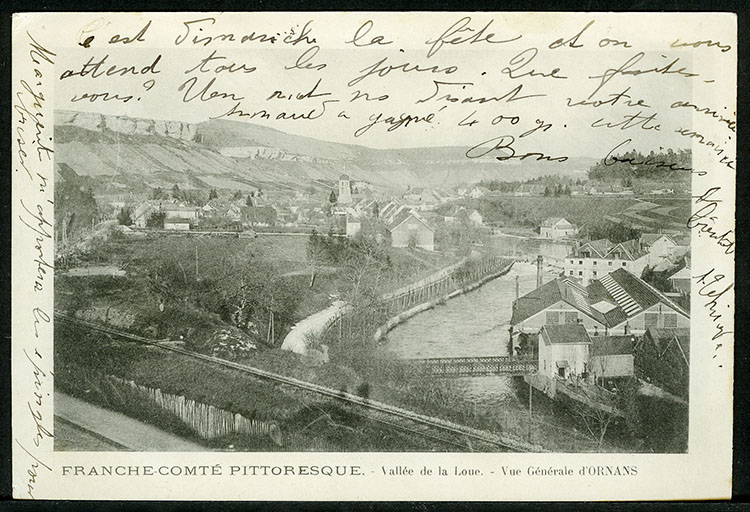 c est Dimanche la fête et on vous
attend tous les jours. Que faites-
vous? Un mot nos disant votre arrivée
Armand a gagné 400 gr. cette semaine
Bons baisers
Marguerit m'apportera les épingles pour
FRANCHE-COMTÉ PITTORESQUE. - Vallée de la Loue. - Vue Générale d'ORNANS